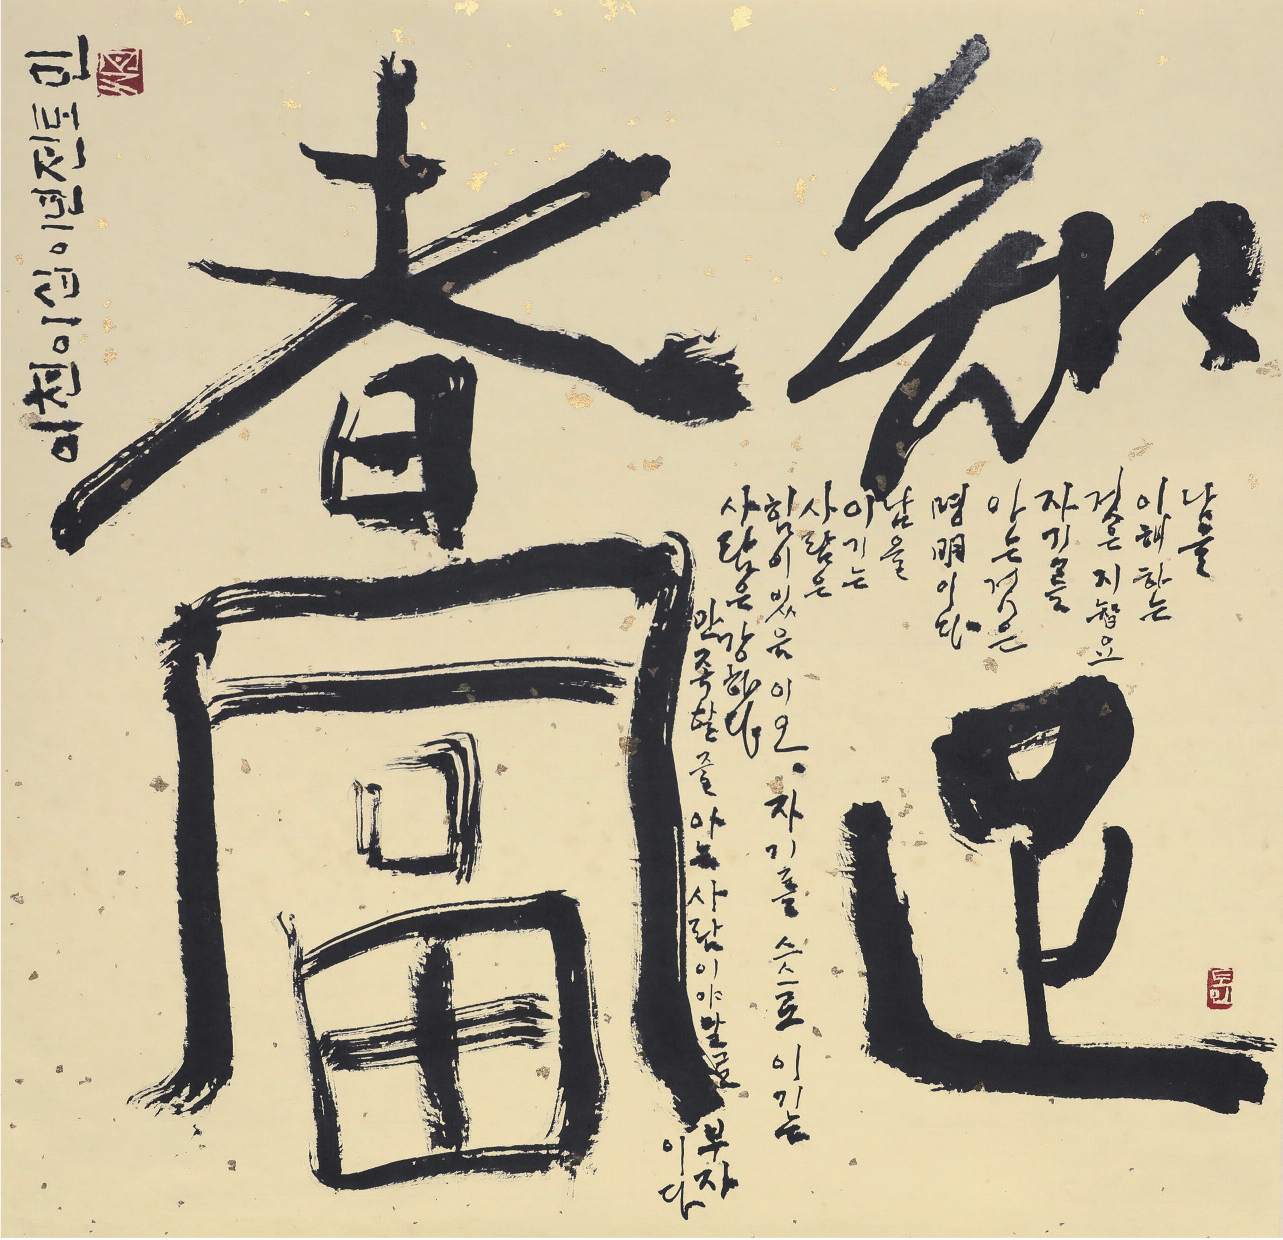 知足
者富
남을
이해하는
것은 지智요
자기를
아는 것은
명明이다.
남을
이기는
사람은
힘이 있음이오. 자기를 스스로 이기는
사람은 강하다
만족할 줄 아는 사람이야말로 부자
이다
이천이십이년 전도민
도민